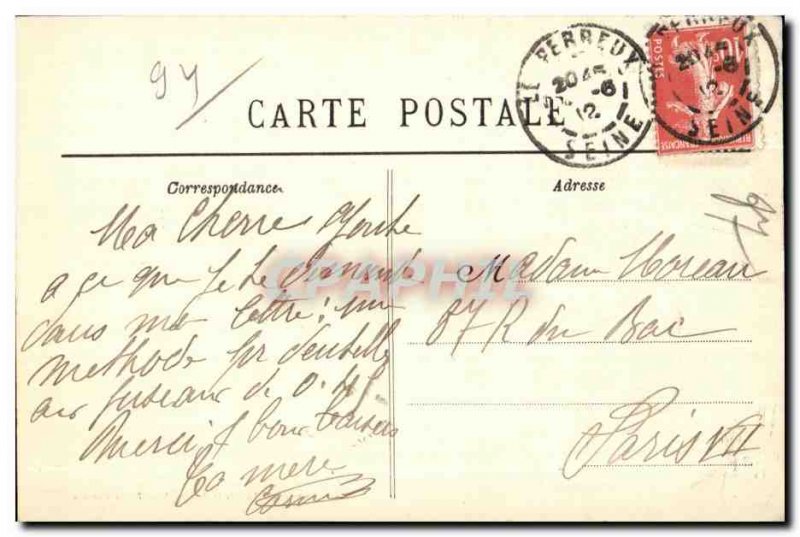 94
CARTE POSTALE
LE PERREUX
20 45
-6
12
SEINE
PERREUX
20 45
-6
12
SEINE
10
POSTES
Correspondance
Ma Cherre
a ce que je te
dans ma lettre : une
methode pr dentelle
au fuseau de 0.
Merci & bons baisers
Ta mere
Adresse
Madame Moreau
87 R du Bac
Paris VII
CPAPHIL